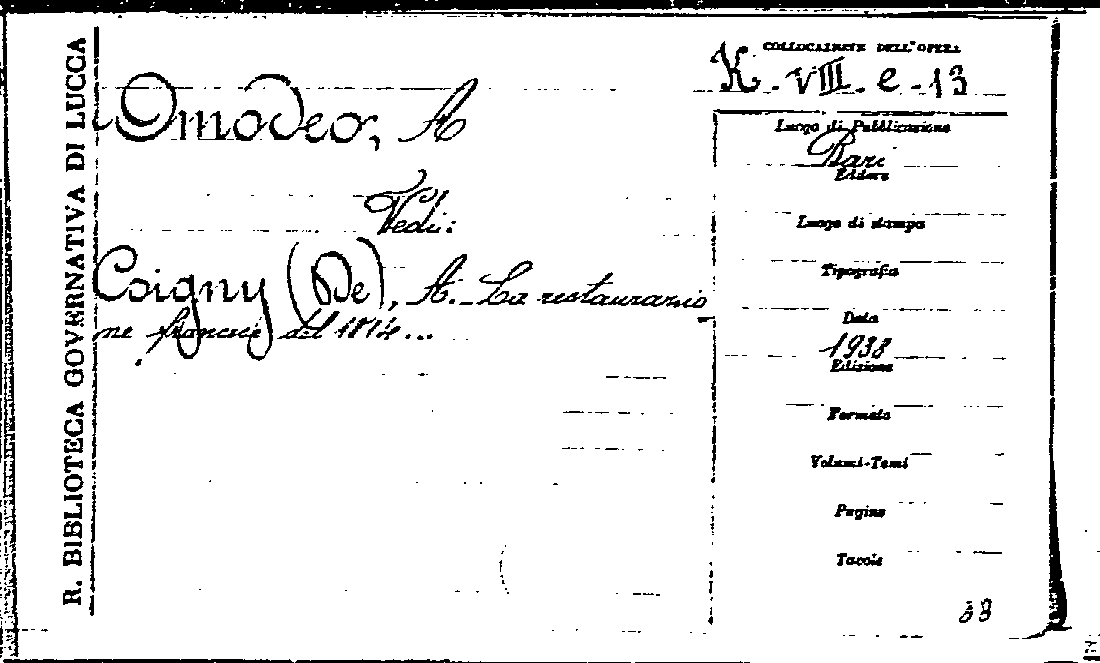 R. BIBLIOTECA GOVERNATIVA DI LUCCA
Omodeo, A
Vedi:
Coigny (De), A. La restaurazio
ne francese del 1814...
COLLOCAZIONE DELL'OPERA
K. VIII. e. 13
Luogo di Pubblicazione
Bari
Editore
Luogo di stampa
Tipografia
Data
1938
Edizione
Formato
Volumi-Tomi
Pagine
Tavole